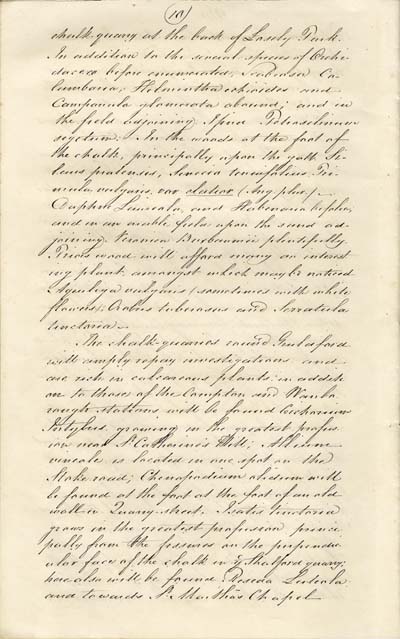 10
chalk-quarry at the back of Losely Park.
In addition to the several species of Orchi-
daceœ before enumerated, Scabiosa Co-
lumbaria, Helmintha echioides and
Campanula glomerata abound; and in
the field adjoining I find Petroselinum
segetum. In the woods at the foot of
the chalk, principally upon the gault Se-
Senecio tenuifolius, Pri-
mula vulgaris, var elatior (Ang plur.)
Daphne Laureola, and Habenaria bifolia,
and in an arable field upon the sand ad-
joining Veronica Buxbaumii plentifully.
Priors wood will afford many an interest
ing plant, amongst which may be noticed
Aquilegia vulgaris (sometimes with white
flowers), Orobus tuberosus and Serratula
tinctoria.
The chalk-quarries round Guildford
will amply repay investigations and
are rich in calcareous plants: in additi
on to those of the Compton and Wanbo
rough stations will be found Cichorium
Intybus, growing in the greatest profus
ion near St Catharine's Hill; Allium
vineale is located in one spot on the
Stoke road; Chenopodium olidum will
be found at the foot at the foot of an old
wall in Quarry-street. Isatis tinctoria
grows in the greatest profusion prince
pally from the fissures on the perpendic
ular face of the chalk in ye Shalford quarry:
here also will be found Reseda Luteola
and towards St Martha's Chapel